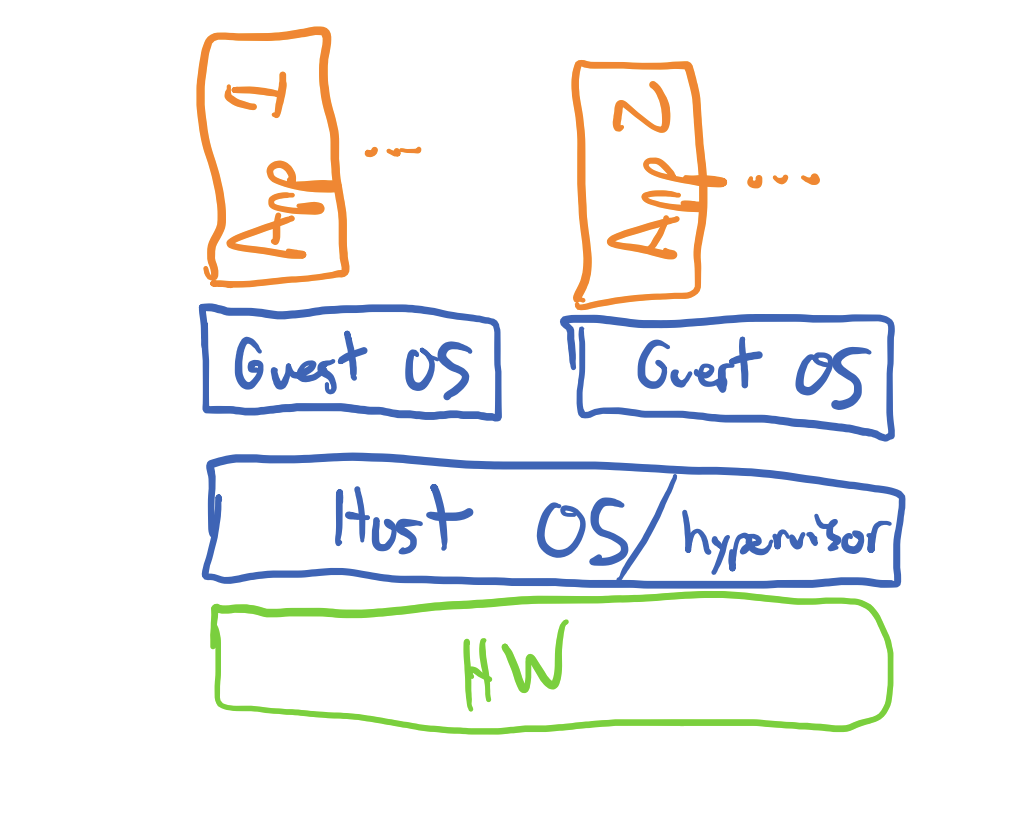 App 1 ...
App 2 ...
Guest OS
Guest OS
Host OS/hypervisor
HW